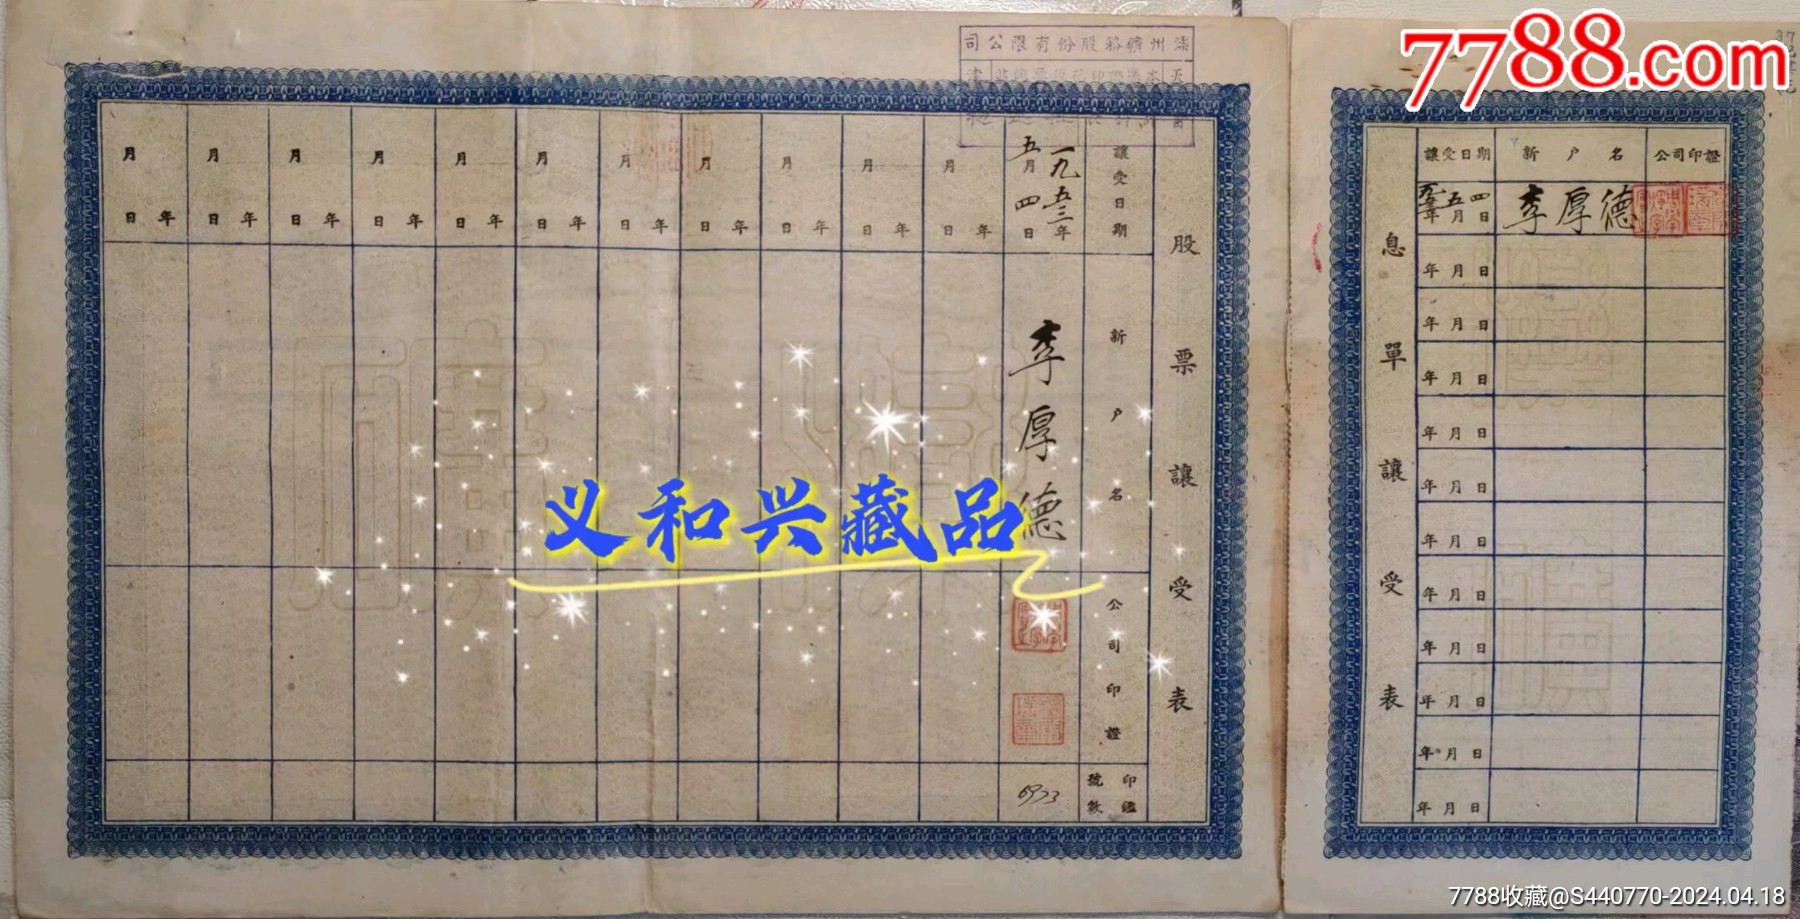 7788.com
灤州礦務股份有限公司
股票讓受表
讓受日期
新戶名
公司印證
印鑑號數
一九五三年五月四日
李厚德
6933
年月日
年月日
年月日
年月日
年月日
年月日
年月日
年月日
年月日
年月日
年月日
息單讓受表
讓受日期 新戶名 公司印證
年五月四日 李厚德
年月日
年月日
年月日
年月日
年月日
年月日
年月日
年月日
年月日
年月日
年月日
义和兴藏品
7788收藏@S440770-2024.04.18